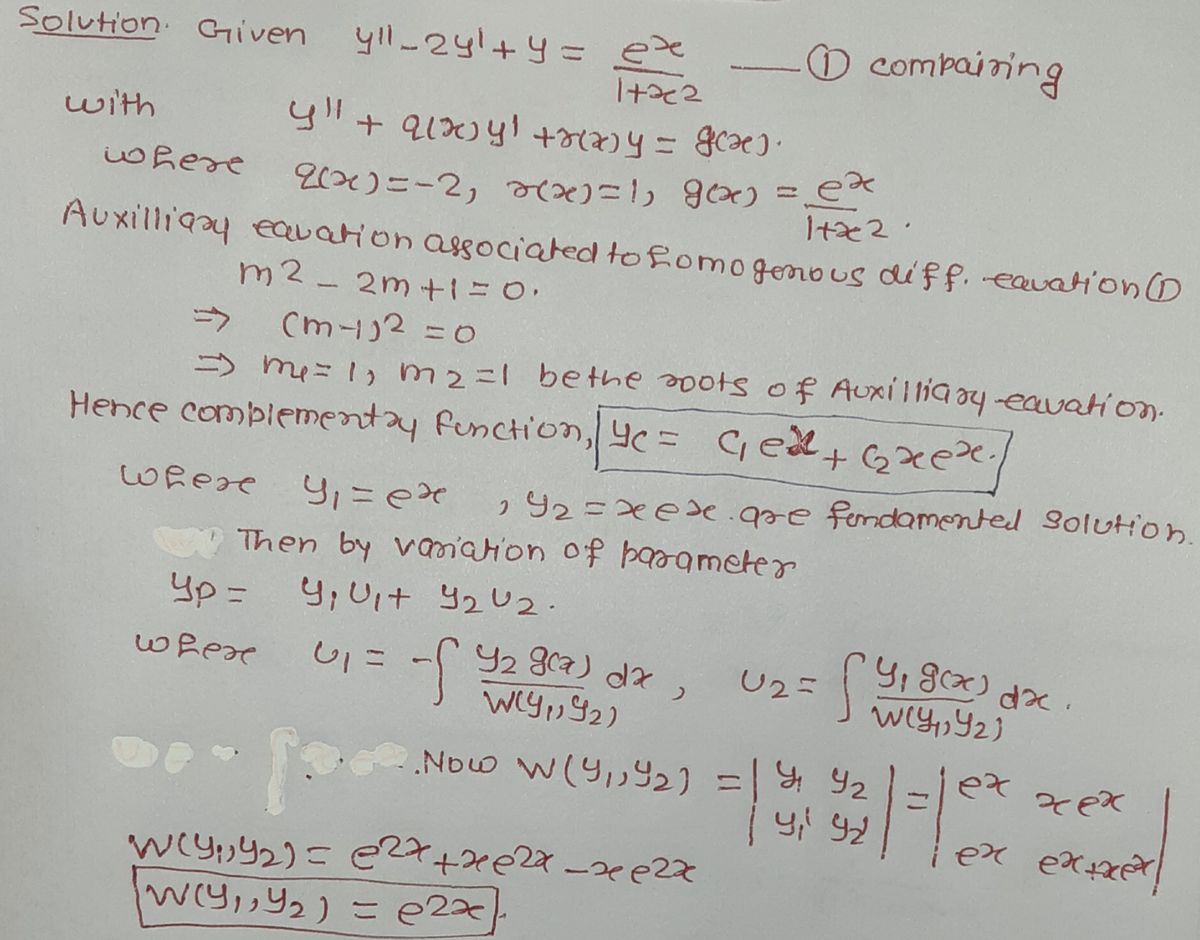 Solution. Given y'' - 2y' + y = e^x / (1+x^2) —— ① compairing
with y'' + q(x)y' + r(x)y = g(x).
where q(x) = -2, r(x) = 1, g(x) = e^x / (1+x^2).
Auxilliary equation associated to homogenous diff. equation ①
m^2 - 2m + 1 = 0.
⇒ (m-1)^2 = 0
⇒ m1 = 1, m2 = 1 be the roots of Auxilliary equation.
Hence complementay function, yc = C1 e^x + C2 x e^x.
where y1 = e^x, y2 = x e^x. are fundamented solution.
Then by variation of parameter
yp = y1 U1 + y2 U2.
where U1 = -∫ y2 g(x) / W(y1, y2) dx, U2 = ∫ y1 g(x) / W(y1, y2) dx.
.Now W(y1, y2) = | y1 y2 ; y1' y2' | = | e^x x e^x ; e^x e^x + x e^x |
W(y1, y2) = e^2x + x e^2x - x e^2x
W(y1, y2) = e^2x.